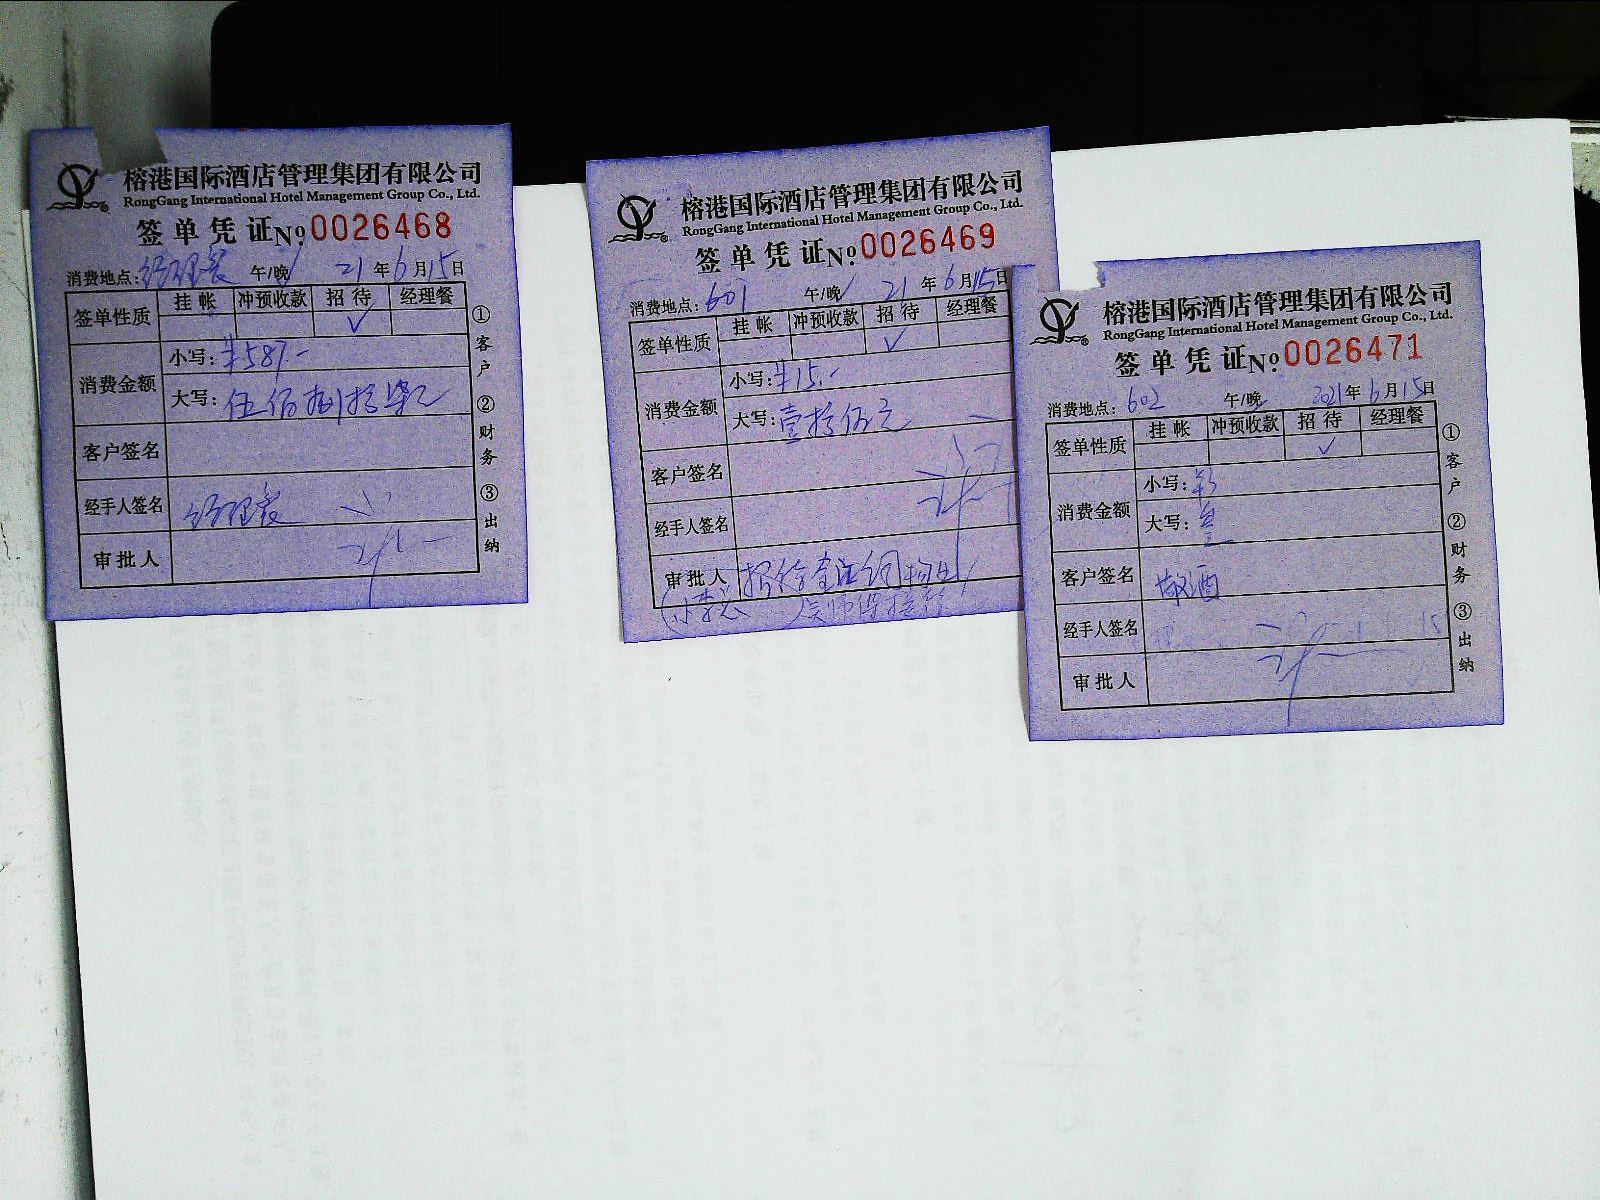 榕港国际酒店管理集团有限公司
RongGang International Hotel Management Group Co., Ltd.
签单凭证 No. 0026468
消费地点: 经理餐 午/晚 21年6月15日
签单性质 挂帐 冲预收款 招待 经理餐
✓
消费金额 小写: ¥587.-
大写: 伍佰捌拾柒元
客户签名
经手人签名 经理餐
审批人
①客户 ②财务 ③出纳
榕港国际酒店管理集团有限公司
RongGang International Hotel Management Group Co., Ltd.
签单凭证 No. 0026469
消费地点: 601 午/晚 21年6月15日
签单性质 挂帐 冲预收款 招待 经理餐
✓
消费金额 小写: ¥15.-
大写: 壹拾伍元
客户签名
经手人签名
审批人
榕港国际酒店管理集团有限公司
RongGang International Hotel Management Group Co., Ltd.
签单凭证 No. 0026471
消费地点: 602 午/晚 2021年6月15日
签单性质 挂帐 冲预收款 招待 经理餐
✓
消费金额 小写:
大写:
客户签名 敬酒
经手人签名
审批人
①客户 ②财务 ③出纳